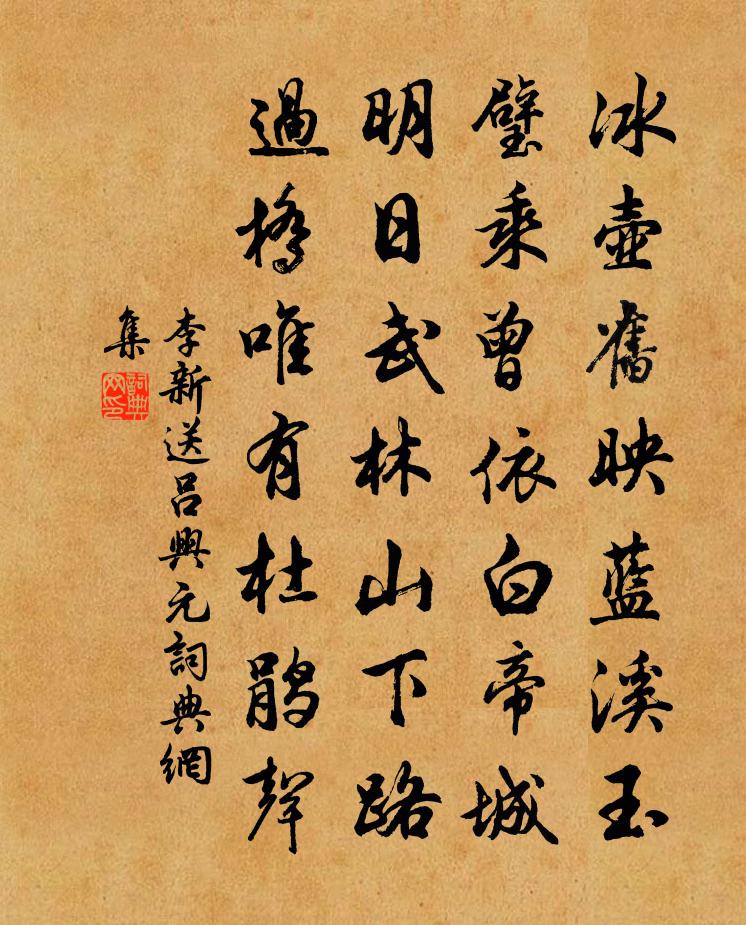 冰壺舊映藍溪玉
璧乘曾依白帝城
明日武林山下路
過橋唯有杜鵑聲
李新送呂興元詞典網
集
詞典
网印